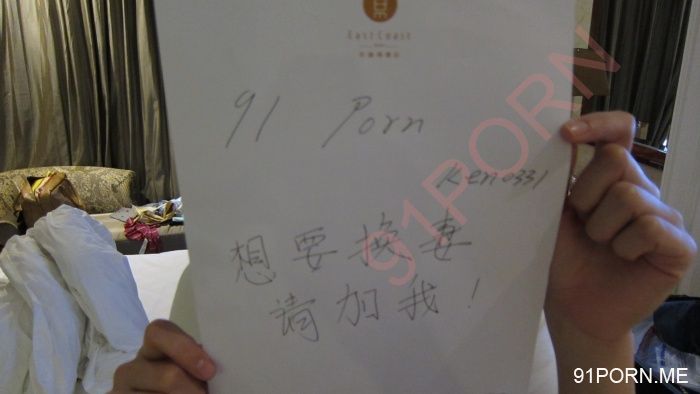 EastCoast
91 Porn
Ken0331
想要换妻
请加我！
91PORN
91PORN.ME